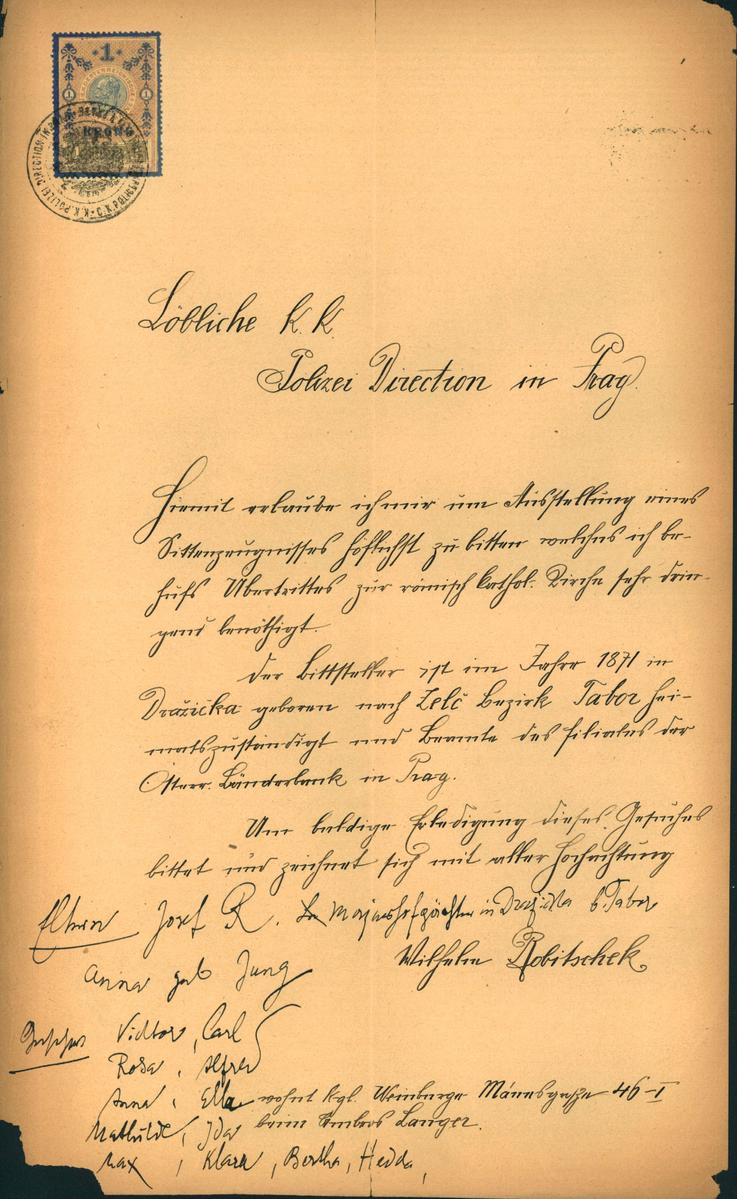 1
1 1
KRONE
K.K. POLIZEI DIRECTION IN
C.K. POLICEJNÍ
Löbliche k. k.
Polizei Direction in Prag.
Hiemit erlaube ich mir um Ausstellung eines
Sittenzeugnisses höflichst zu bitten welches ich be-
hufs Übertrittes zur römisch kathol. Kirche sehr drin-
gend benöthigt.
Der Bittsteller ist im Jahre 1871 in
Dražička geboren nach Želč Bezirk Tabor hei-
matszuständigt und Beamte des Filiales der
Österr. Länderbank in Prag.
Um baldige Erledigung dieses Gesuches
bittet und zeichnet sich mit aller Hochachtung
Eltern Josef R. in Dražička b. Tabor
Wilhelm Robitschek
Anna geb Jung
Victor, Carl
Rosa, Alfred
Anna, Ella
wohnt kgl. Weinberge Mánesgasse 46-I
Mathilde, Ida
beim Langer.
Max, Klara, Bertha, Hedda,